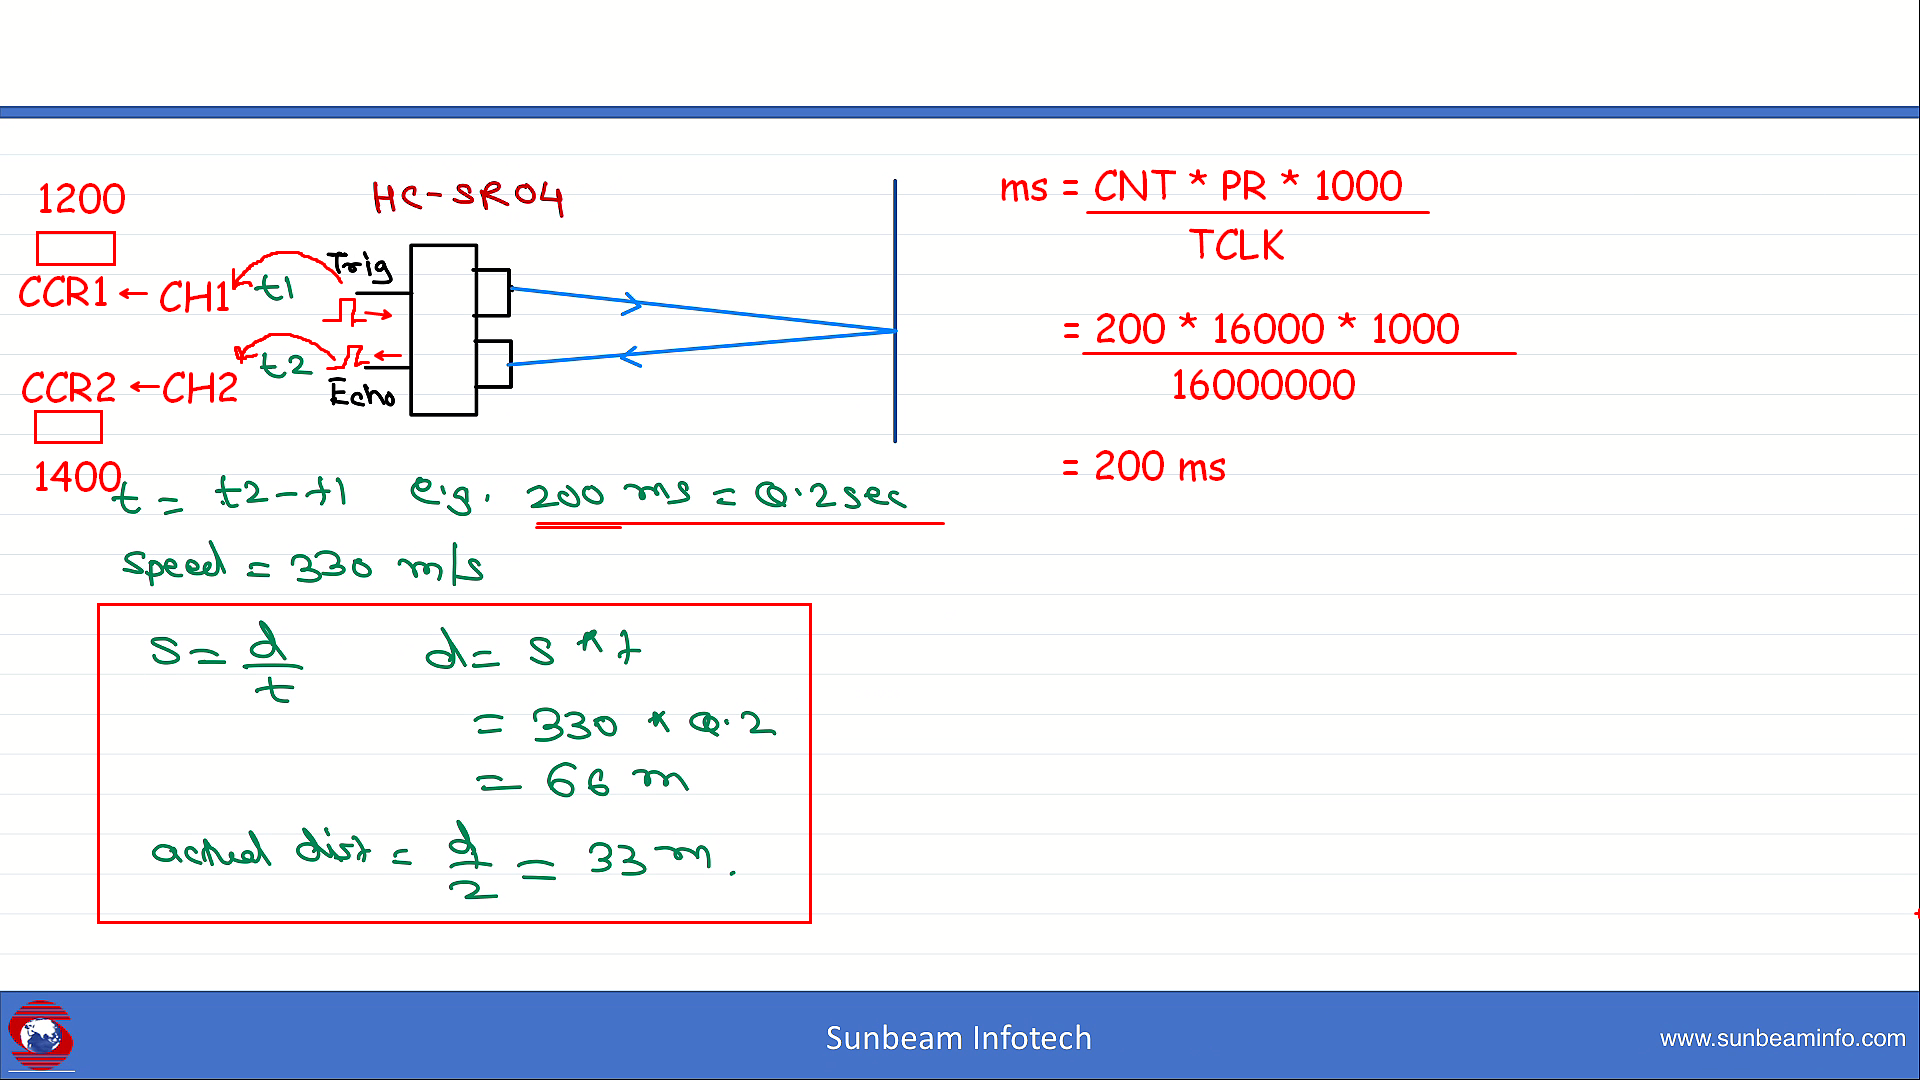 1200
HC-SR04
Trig
CCR1 ← CH1 t1
t2
CCR2 ← CH2
Echo
1400
t = t2-t1 e.g. 200 ms = 0.2sec
speed = 330 m/s
s = d/t d = s * t
= 330 * 0.2
= 66 m
actual dist = d/2 = 33 m.
ms = CNT * PR * 1000
TCLK
= 200 * 16000 * 1000
16000000
= 200 ms
Sunbeam Infotech
www.sunbeaminfo.com